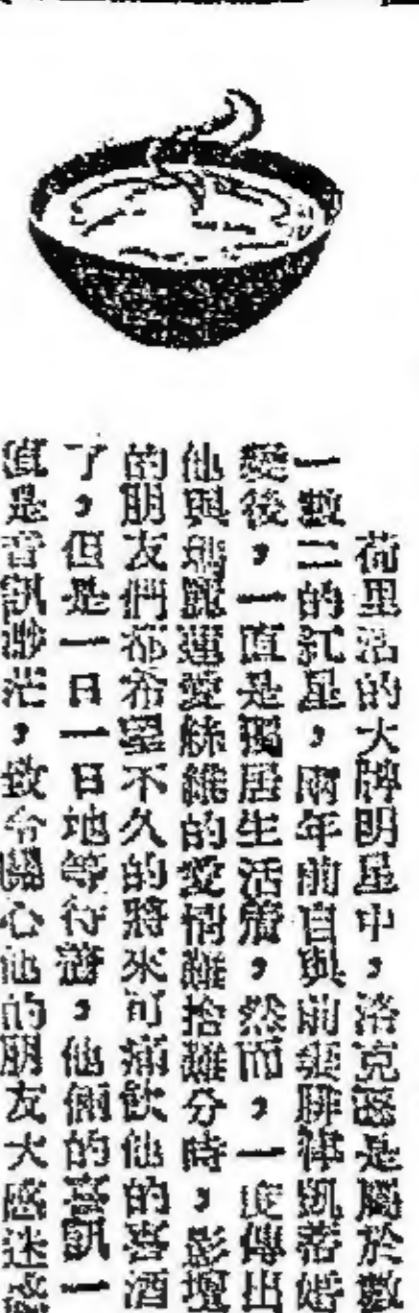 荷里活的大牌明星中，洛克遜是屬於數
一數二的紅星，兩年前自與前妻腓律凱蒂婚
變後，一直是獨居生活着，然而，一度傳出
他與瑪麗蓮愛絲維的愛情難捨難分時，影壇
的朋友們都希望不久的將來可痛飲他的喜酒
了，但是一日一日地等待着，他倆的喜訊一
直是音訊渺茫，致令關心他的朋友大感迷惑